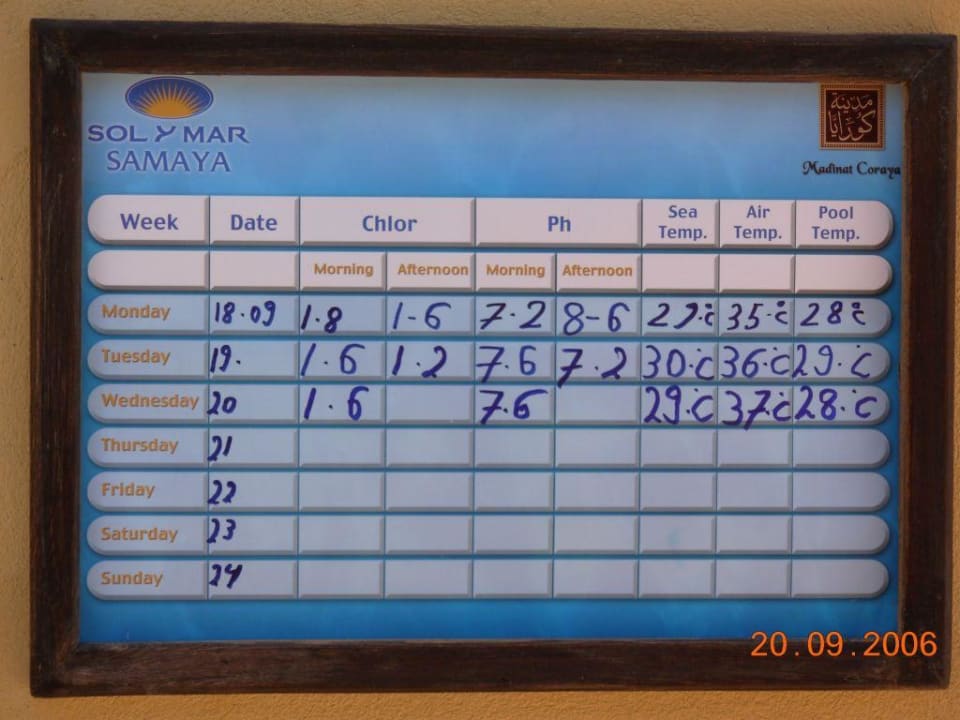 SOL Y MAR
SAMAYA
مدينة
كورايا
Madinat Coraya
Week Date Chlor Ph Sea Temp. Air Temp. Pool Temp.
Morning Afternoon Morning Afternoon
Monday 18.09 1.8 1-6 7.2 8-6 29.c 35.c 28 c
Tuesday 19. 1.6 1.2 7.6 7.2 30.c 36.c 29.c
Wednesday 20 1.6 7.6 29.c 37.c 28.c
Thursday 21
Friday 22
Saturday 23
Sunday 24
20.09.2006